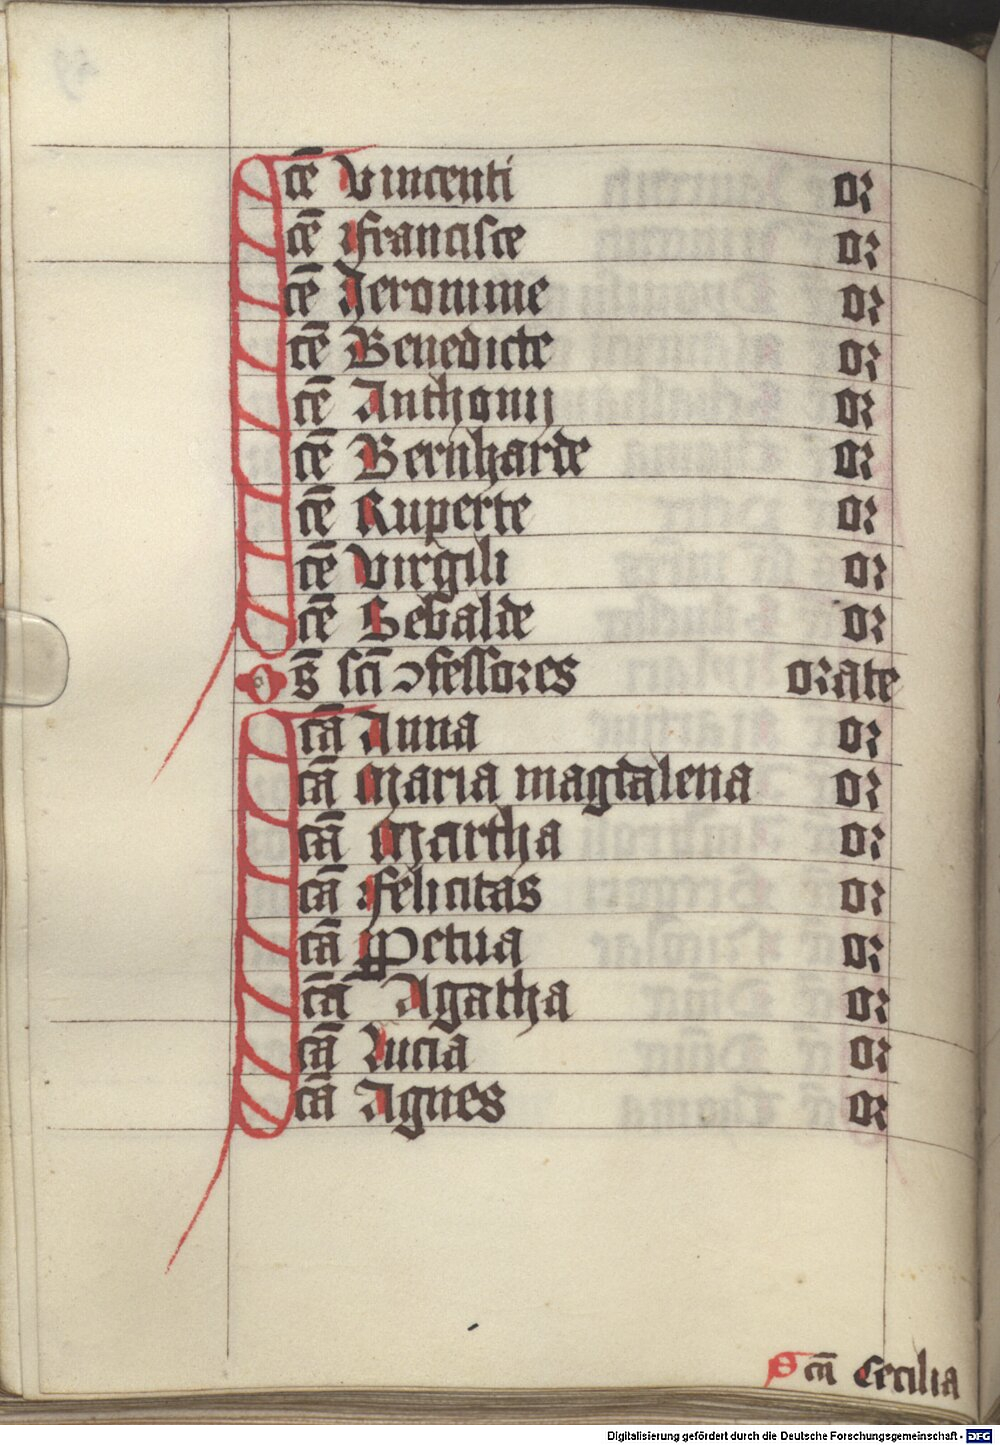 Scē Vincenti or
Scē Francisce or
Scē Jeronime or
Scē Benedicte or
Scē Anthonij or
Scē Bernharde or
Scē Ruperte or
Scē Virgili or
Scē Sebalde or
Os̄ sci ꝯfessores orate
Scā Anna or
Scā Maria magdalena or
Scā Martha or
Scā Felicitas or
Scā Petua or
Scā Agatha or
Scā Lucia or
Scā Agnes or
Scā Cecilia
Digitalisierung gefördert durch die Deutsche Forschungsgemeinschaft - DFG